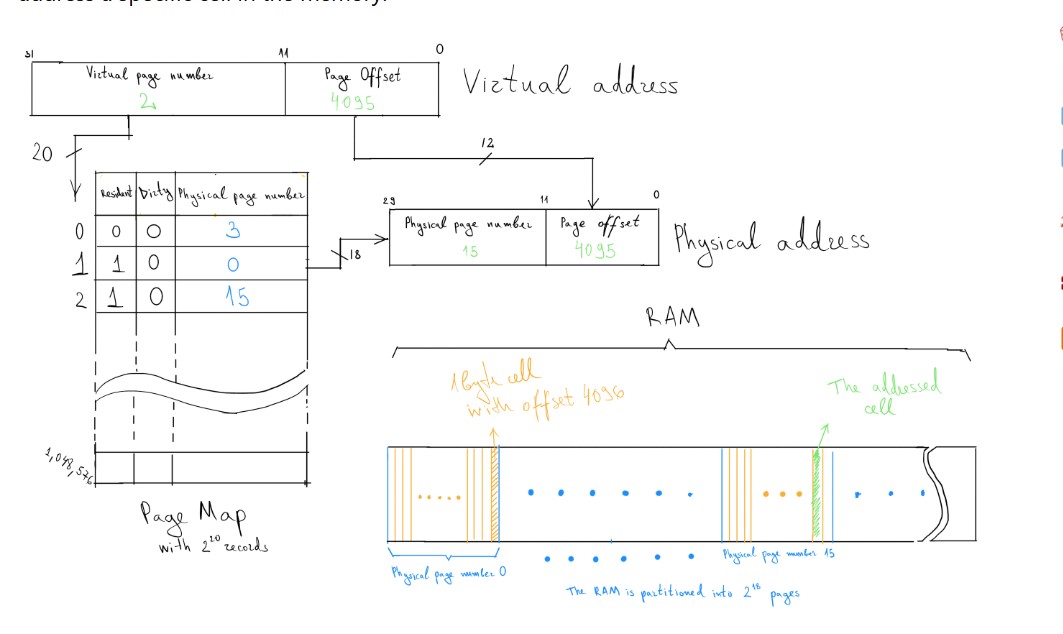 address a specific cell in the memory.
31 11 0
Virtual page number Page Offset
2 4095
Virtual address
20
12
Resident Dirty Physical page number
0 0 0 3
1 1 0 0
2 1 0 15
18
29 11 0
Physical page number Page offset
15 4095
Physical address
RAM
1 byte cell
with offset 4096
The addressed
cell
1,048,576
Page Map
with 2^20 records
Physical page number 0
Physical page number 15
The RAM is partitioned into 2^18 pages